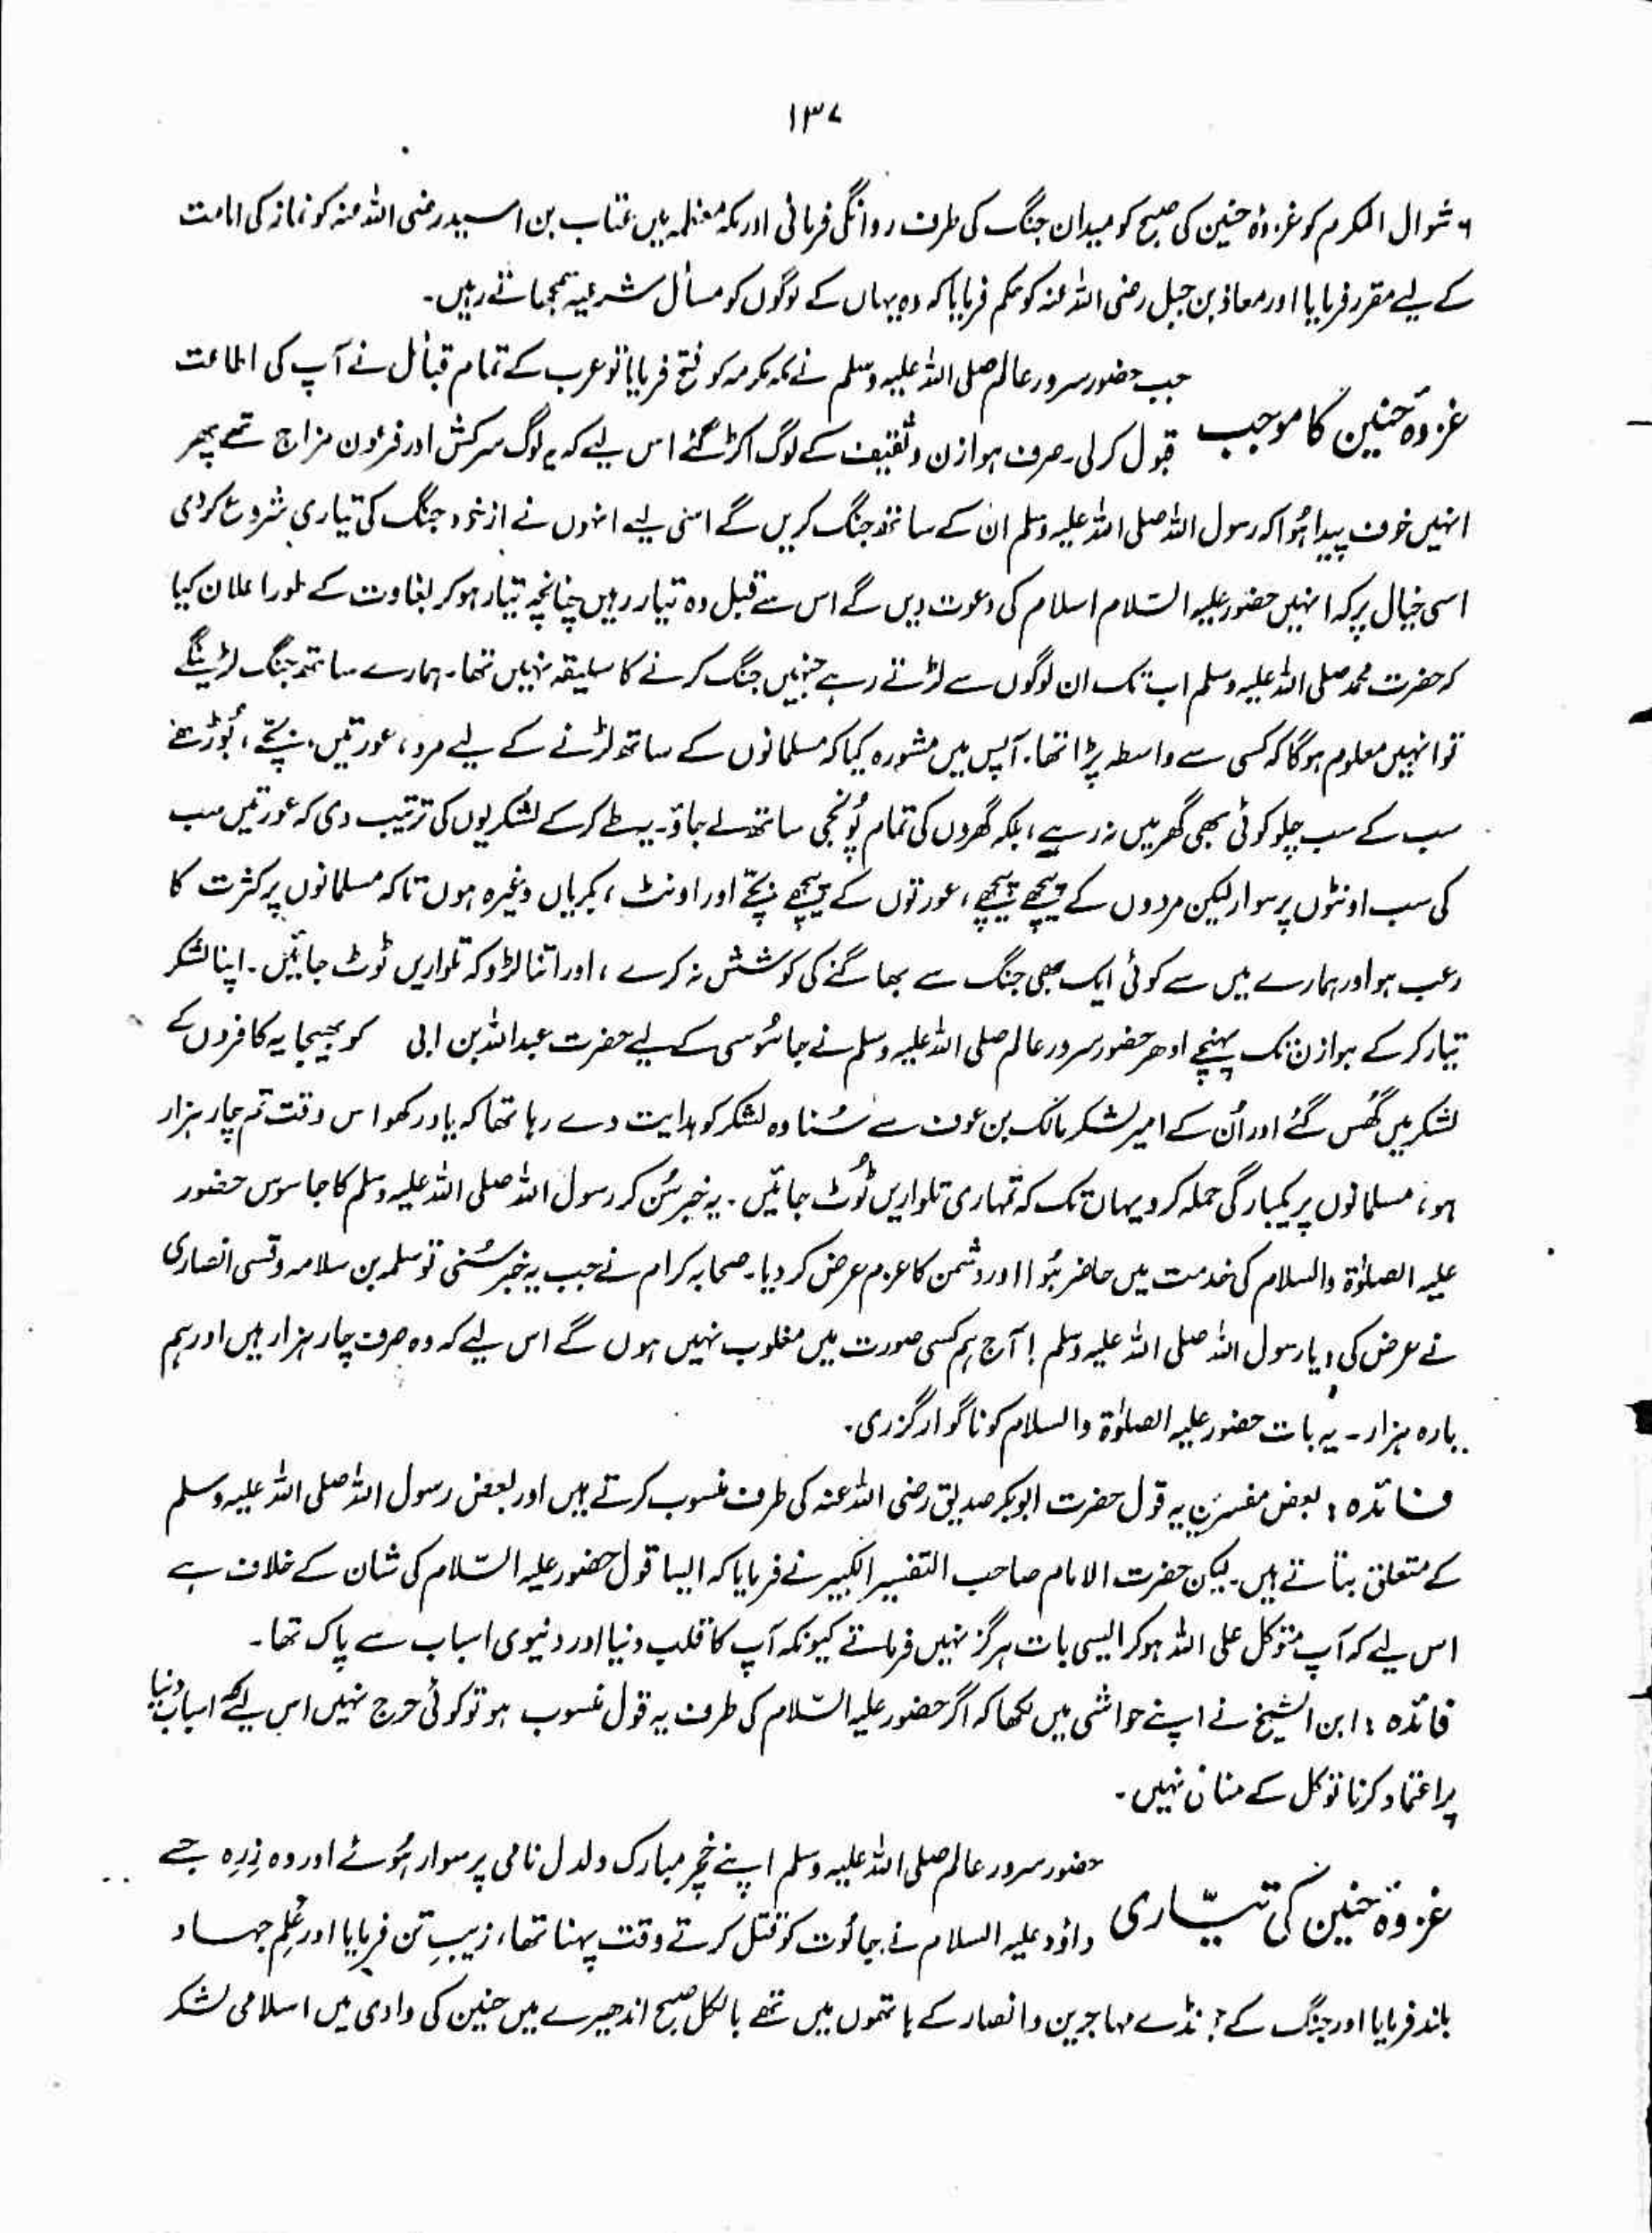 ۱۳۷
۶ شوال المکرم کو غزوۂ حنین کی صبح کو میدان جنگ کی طرف روانگی فرمائی اور مکہ معظمہ میں عتاب بن اسید رضی اللہ عنہ کو نماز کی امامت
کے لیے مقرر فرمایا اور معاذ بن جبل رضی اللہ عنہ کو حکم فرمایا کہ وہ یہاں کے لوگوں کو مسائل شرعیہ سمجھاتے رہیں۔
غزوۂ حنین کا موجب
جب حضور سرور عالم صلی اللہ علیہ وسلم نے مکہ مکرمہ کو فتح فرمایا تو عرب کے تمام قبائل نے آپ کی اطاعت
قبول کر لی۔ صرف ہوازن و ثقیف کے لوگ اکڑ گئے اس لیے کہ یہ لوگ سرکش اور فرعون مزاج تھے پھر
انہیں خوف پیدا ہُوا کہ رسول اللہ صلی اللہ علیہ وسلم ان کے ساتھ جنگ کریں گے اسی لیے انہوں نے از خود جنگ کی تیاری شروع کر دی
اسی خیال پر کہ انہیں حضور علیہ السّلام اسلام کی دعوت دیں گے اس سے قبل وہ تیار رہیں چنانچہ تیار ہو کر بغاوت کے طور اعلان کیا
کہ حضرت محمد صلی اللہ علیہ وسلم اب تک ان لوگوں سے لڑتے رہے جنہیں جنگ کرنے کا سلیقہ نہیں تھا۔ ہمارے ساتھ جنگ لڑینگے
تو انہیں معلوم ہوگا کہ کسی سے واسطہ پڑا تھا۔ آپس میں مشورہ کیا کہ مسلمانوں کے ساتھ لڑنے کے لیے مرد، عورتیں، بچّے، بُوڑھے
سب کے سب چلو کوئی بھی گھر میں نہ رہے، بلکہ گھروں کی تمام پُونجی ساتھ لے جاؤ۔ یہ طے کر کے لشکریوں کی ترتیب دی کہ عورتیں سب
کی سب اونٹوں پر سوار لیکن مردوں کے پیچھے پیچھے، عورتوں کے پیچھے بچّے اور اونٹ، بکریاں وغیرہ ہوں تاکہ مسلمانوں پر کثرت کا
رعب ہو اور ہمارے میں سے کوئی ایک بھی جنگ سے بھاگنے کی کوشش نہ کرے، اور اتنا لڑو کہ تلواریں ٹوٹ جائیں۔ اپنا لشکر
تیار کر کے ہوازن تک پہنچے ادھر حضور سرور عالم صلی اللہ علیہ وسلم نے جاسُوسی کے لیے حضرت عبداللہ بن ابی کو بھیجا یہ کافروں کے
لشکر میں گھُس گئے اور اُن کے امیر لشکر مالک بن عوف سے سُنا وہ لشکر کو ہدایت دے رہا تھا کہ یاد رکھو اس وقت تم چار ہزار
ہو، مسلمانوں پر یکبارگی حملہ کر دو یہاں تک کہ تمہاری تلواریں ٹُوٹ جائیں۔ یہ خبر سُن کر رسول اللہ صلی اللہ علیہ وسلم کا جاسوس حضور
علیہ الصلوٰۃ والسلام کی خدمت میں حاضر ہُوا اور دشمن کا عزم عرض کر دیا۔ صحابہ کرام نے جب یہ خبر سُنی تو سلمہ بن سلامہ وقسی انصاری
نے عرض کی: یا رسول اللہ صلی اللہ علیہ وسلم! آج ہم کسی صورت میں مغلوب نہیں ہوں گے اس لیے کہ وہ صرف چار ہزار ہیں اور ہم
بارہ ہزار۔ یہ بات حضور علیہ الصلوٰۃ والسلام کو ناگوار گزری۔
فائدہ: بعض مفسرین یہ قول حضرت ابوبکر صدیق رضی اللہ عنہ کی طرف منسوب کرتے ہیں اور بعض رسول اللہ صلی اللہ علیہ وسلم
کے متعلق بتاتے ہیں۔ لیکن حضرت الامام صاحب التفسیر الکبیر نے فرمایا کہ ایسا قول حضور علیہ السّلام کی شان کے خلاف ہے
اس لیے کہ آپ متوکل علی اللہ ہو کر ایسی بات ہرگز نہیں فرماتے کیونکہ آپ کا قلب دنیا اور دنیوی اسباب سے پاک تھا۔
فائدہ: ابن الشیخ نے اپنے حواشی میں لکھا کہ اگر حضور علیہ السّلام کی طرف یہ قول منسوب ہو تو کوئی حرج نہیں اس لیے کہ اسبابِ دنیا
پر اعتماد کرنا توکل کے منافی نہیں۔
غزوۂ حنین کی تیّاری
حضور سرور عالم صلی اللہ علیہ وسلم اپنے خچر مبارک دلدل نامی پر سوار ہُوئے اور وہ زِرہ جسے
داؤد علیہ السلام نے جالُوت کو قتل کرتے وقت پہنا تھا، زیبِ تن فرمایا اور عَلمِ جہاد
بلند فرمایا اور جنگ کے جھنڈے مہاجرین و انصار کے ہاتھوں میں تھے بالکل صبح اندھیرے میں حنین کی وادی میں اسلامی لشکر